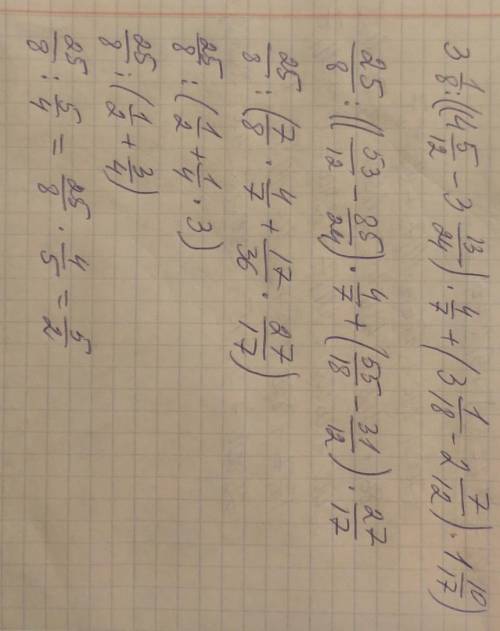 3 1/8 : ((4 5/12 - 3 13/24) · 4/7 + (3 1/18 - 2 7/12) · 1 10/17)
25/8 : ((53/12 - 85/24) · 4/7 + (55/18 - 31/12) · 27/17
25/8 : (7/8 · 4/7 + 17/36 · 27/17)
25/8 : (1/2 + 1/4 · 3)
25/8 : (1/2 + 3/4)
25/8 : 5/4 = 25/8 · 4/5 = 5/2